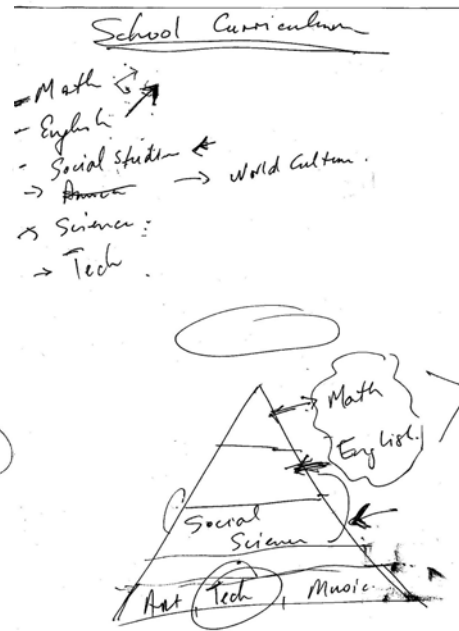 School Curriculum
- Math
- English
- Social Studies
→ → World Culture.
× Science :
→ Tech
Math
English.
Social
Science
Art, Tech, Music.